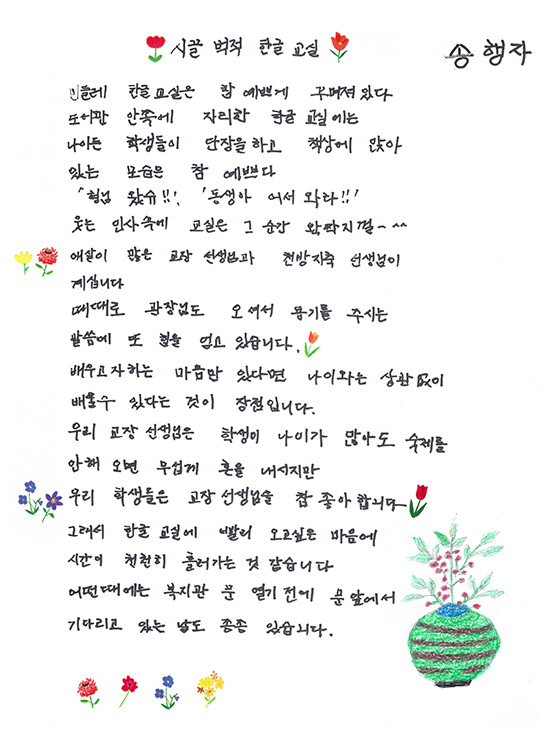 시끌 벅적 한글 교실
송 행자
민들레 한글 교실은 참 예쁘게 꾸며져 있다
도서관 안쪽에 자리한 한글 교실에는
나이든 학생들이 단장을 하고 책상에 앉아
있는 모습은 참 예쁘다
"형님 왔슈!!", "동생아 어서 와라!!"
웃는 인사속에 교실은 그 순간 왁짜지껄~^^
애살이 많은 교장 선생님과 천방지축 선생님이
계십니다
때때로 관장님도 오셔서 용기를 주시는
말씀에 또 힘을 얻고 있습니다.
배우고자하는 마음만 있다면 나이와는 상관없이
배울수 있다는 것이 장점입니다.
우리 교장 선생님은 학생이 나이가 많아도 숙제를
안해 오면 무섭게 혼을 내시지만
우리 학생들은 교장 선생님을 참 좋아 합니다
그래서 한글 교실에 빨리 오고싶은 마음에
시간이 천천히 흘러가는 것 같습니다
어떤때에는 복지관 문 열기 전에 문 앞에서
기다리고 있는 날도 종종 있습니다.